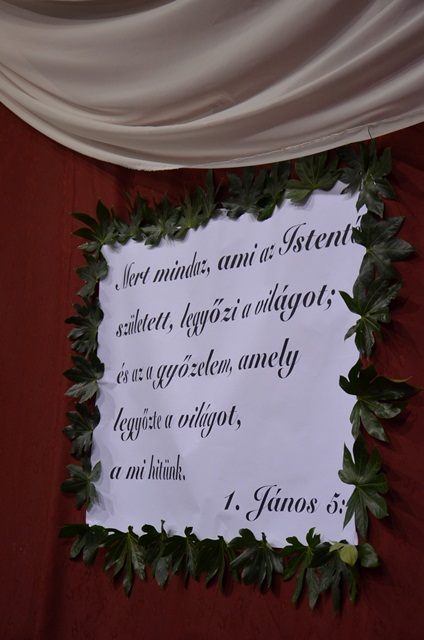 Mert mindaz, ami az Istent
született, legyőzi a világot;
és az a győzelem, amely
legyőzte a világot,
a mi hitünk.
1. János 5: